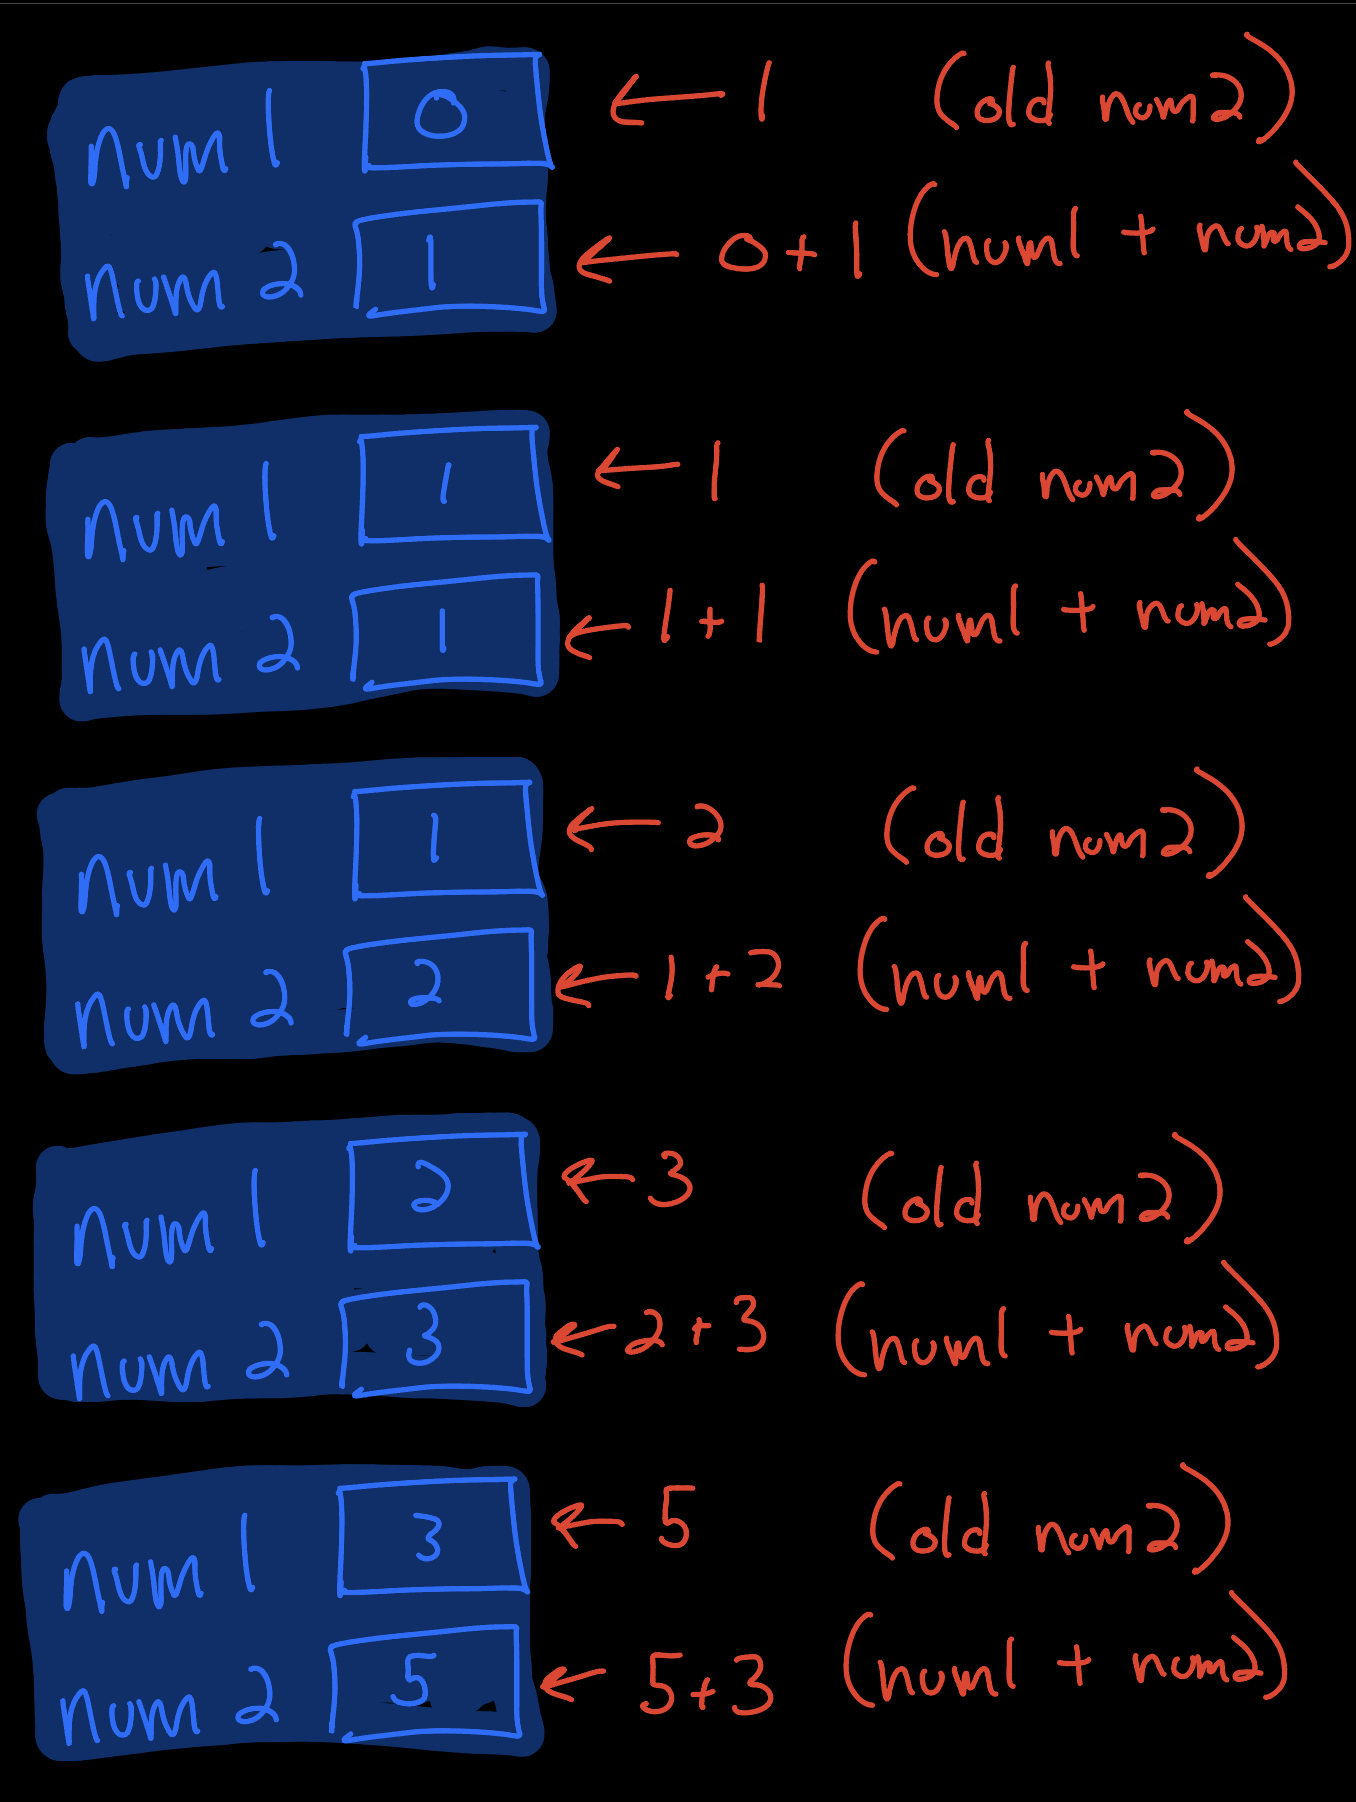 num 1 0 ← 1 (old num2)
num 2 1 ← 0 + 1 (num1 + num2)
num 1 1 ← 1 (old num2)
num 2 1 ← 1 + 1 (num1 + num2)
num 1 1 ← 2 (old num2)
num 2 2 ← 1 + 2 (num1 + num2)
num 1 2 ← 3 (old num2)
num 2 3 ← 2 + 3 (num1 + num2)
num 1 3 ← 5 (old num2)
num 2 5 ← 5 + 3 (num1 + num2)